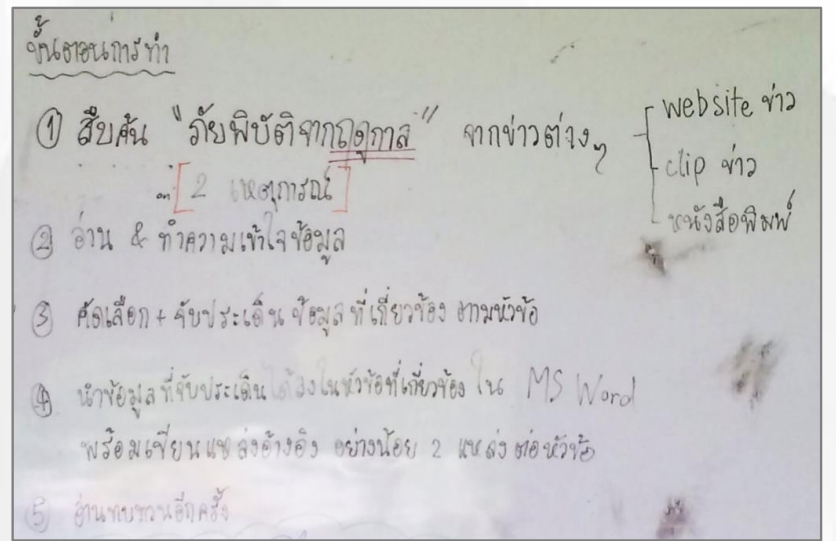 ขั้นตอนการทำ
① สืบค้น "ภัยพิบัติจากฤดูกาล" จากข่าวต่างๆ
website ข่าว
clip ข่าว
หนังสือพิมพ์
[2 เหตุการณ์]
② อ่าน & ทำความเข้าใจข้อมูล
③ คัดเลือก + จับประเด็น ข้อมูลที่เกี่ยวข้อง ตามหัวข้อ
④ นำข้อมูลที่จับประเด็นได้ลงในหัวข้อที่เกี่ยวข้อง ใน MS Word
พร้อมเขียนแหล่งอ้างอิง อย่างน้อย 2 แหล่ง ต่อหัวข้อ
⑤ อ่านทบทวนอีกครั้ง